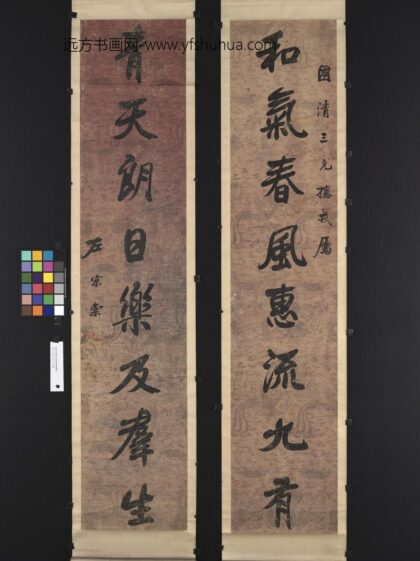 远方书画网-www.yfshuhua.com
國清三兄總戎屬
和氣春風惠流九有
青天朗日樂及羣生
左宗棠